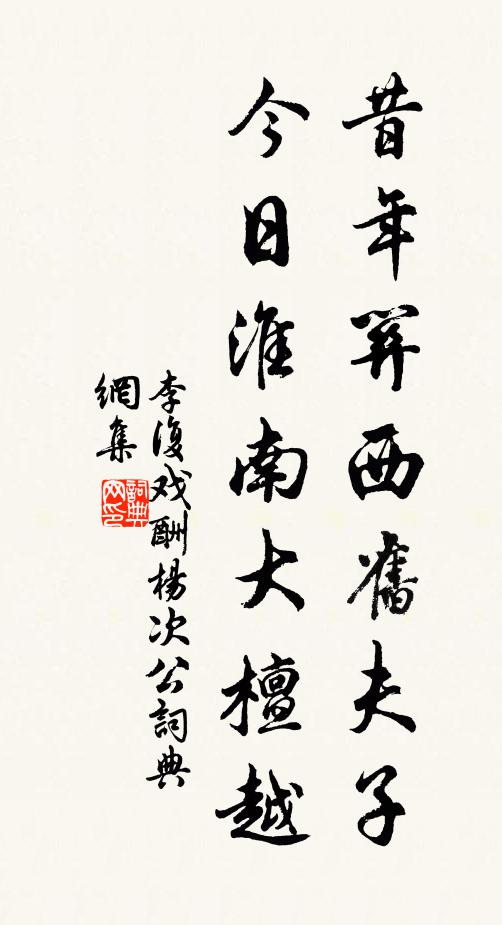 昔年關西舊夫子
今日淮南大檀越
李復戏酬楊次公詞典
網集
詞典網印